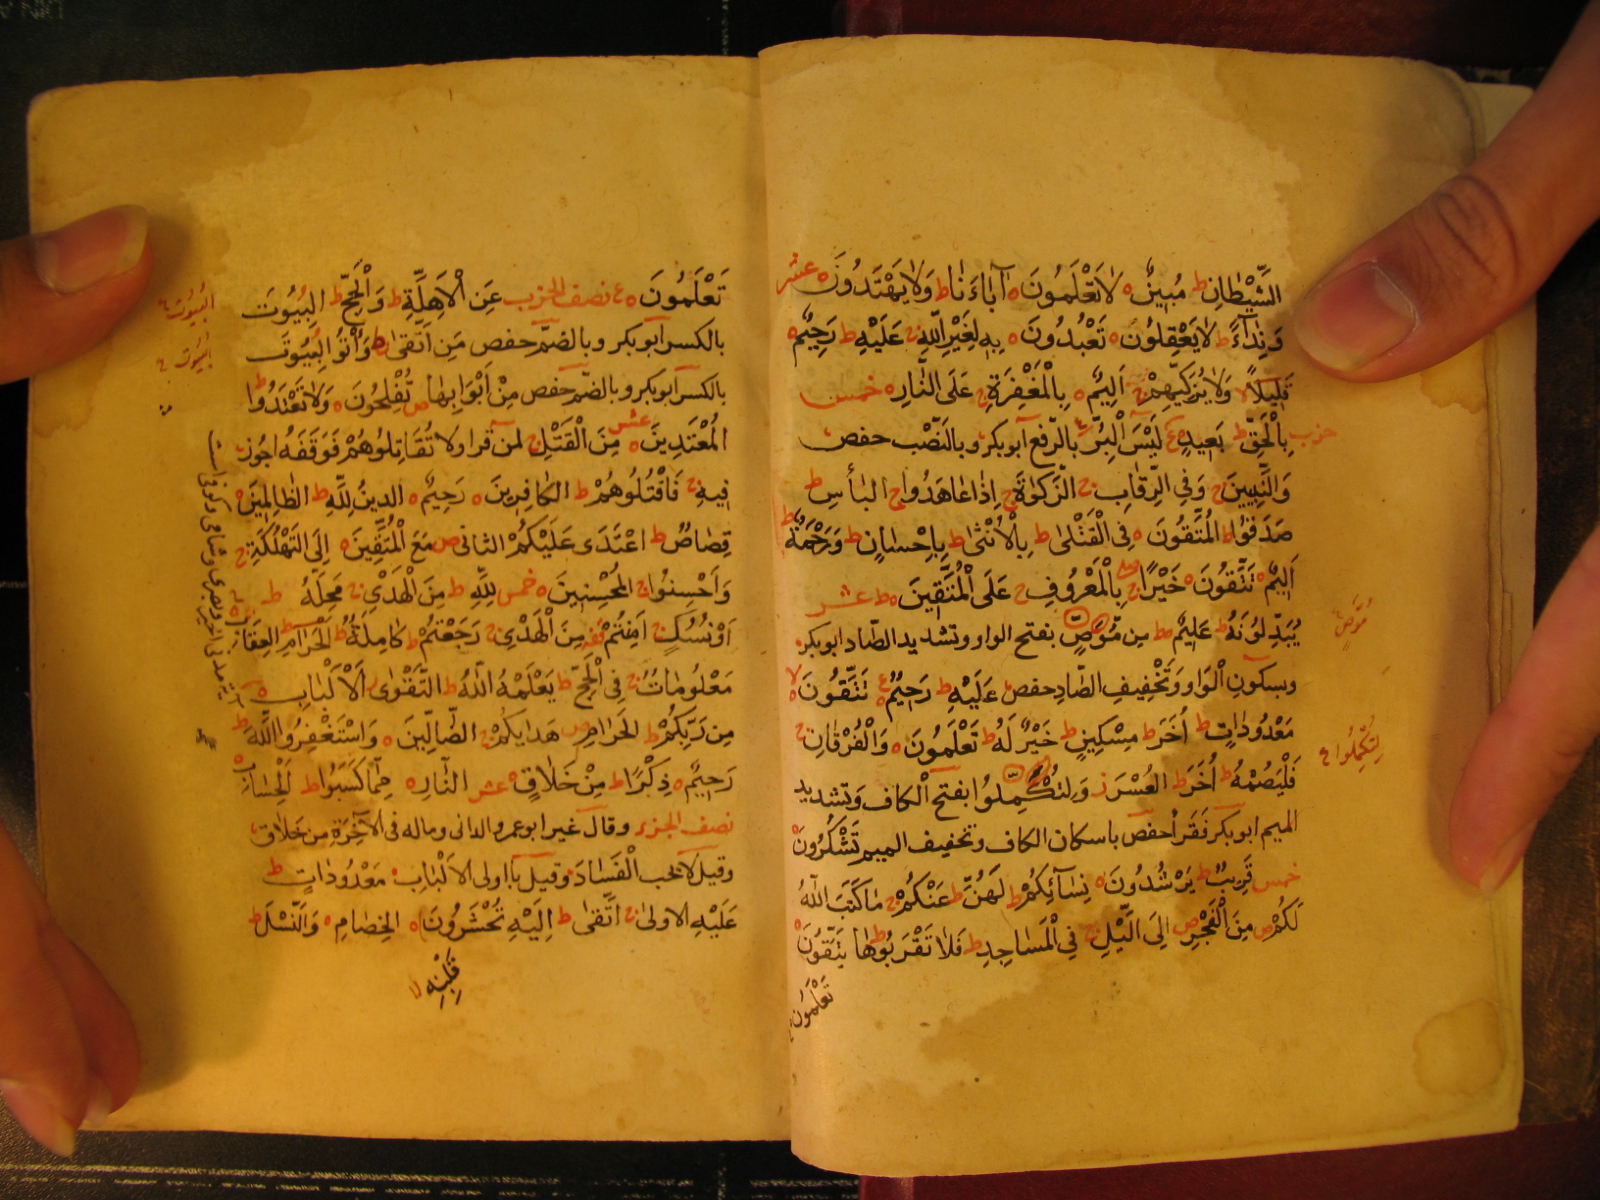 الشَّيْطَانِ ط مُبِينٌ ه لَا تَعْلَمُونَ ه آبَاءَنَا ط وَلَا يَهْتَدُونَ ه عشر
وَنِدَاءً ط لَا يَعْقِلُونَ ه تَعْبُدُونَ ه بِهِ لِغَيْرِ اللَّهِ ج عَلَيْهِ ط رَحِيمٌ ه
قَلِيلًا لا وَلَا يُزَكِّيهِمْ ج أَلِيمٌ ه بِالْمَغْفِرَةِ ج عَلَى النَّارِ ه خمس
حزب بِالْحَقِّ ط بَعِيدٍ ع لَيْسَ الْبِرُّ بالرفع ابوبكر وبالنَّصْب حفص
وَالنَّبِيِّينَ ج وَفِي الرِّقَابِ ج الزَّكَوٰةَ ج إِذَا عَاهَدُوا ج الْبَأْسِ ط
صَدَقُوا ط الْمُتَّقُونَ ه فِي الْقَتْلَى ط بِالْأُنْثَى ط بِإِحْسَانٍ ط وَرَحْمَةٌ ط
أَلِيمٌ ه تَتَّقُونَ ه خَيْرًا ج بِالْمَعْرُوفِ ج عَلَى الْمُتَّقِينَ ه ط عشر
يُبَدِّلُونَهُ ط عَلِيمٌ ط مِن مُّوَصٍّ بفتح الواو وتشديد الصّاد ابوبكر
مُوَصٍّ
وبسكون الْوَاو وَتَخْفِيفِ الصَّادِ حفص عَلَيْهِ ط رَحِيمٌ ع تَتَّقُونَ لا
مَعْدُودَاتٍ ط أُخَرَ ط مِسْكِينٍ ط خَيْرٌ لَهُ ط تَعْلَمُونَ ه وَالْفُرْقَانِ ج
لِتُكَمِّلُوا
فَلْيَصُمْهُ ط أُخَرَ ط الْعُسْرَ ز وَلِتُكَمِّلُوا بفتح الكاف وَتشديد
الميم ابوبكر فَقَرَأ حفص باسكان الكاف وتخفيف الميم تَشْكُرُونَ ه
خمس قَرِيبٌ ط يَرْشُدُونَ ه نِسَآئِكُمْ ط لَهُنَّ ط عَنْكُمْ ج مَا كَتَبَ اللَّهُ
لَكُمْ ص مِنَ الْفَجْرِ ص إِلَى اللَّيْلِ ج فِي الْمَسَاجِدِ ط فَلَا تَقْرَبُوهَا ط يَتَّقُونَ ه
تَعْلَمُونَ
تَعْلَمُونَ ه ع نصف الحزب عَنِ الْأَهِلَّةِ ط وَالْحَجِّ ط الْبِيُوتَ
الْبِيُوتَ
بالكسر ابوبكر وبالضمّ حفص مَنِ اتَّقَى ج وَأْتُوا الْبِيُوتَ
الْبِيُوتَ
بالكسر ابوبكر وبالضمّ حفص مِنْ أَبْوَابِهَا ص تُفْلِحُونَ ه وَلَا تَعْتَدُوا ط
الْمُعْتَدِينَ ه عشر مِنَ الْقَتْلِ ج لمن قرا ولا تُقَاتِلُوهُمْ فَوَقَفَهُ اجوز
فِيهِ ج فَاقْتُلُوهُمْ ط الْكَافِرِينَ ه رَحِيمٌ ه الدِّينُ لِلَّهِ ط الظَّالِمِينَ ه
قِصَاصٌ ط اعْتَدَى عَلَيْكُمْ الثانى ص مَعَ الْمُتَّقِينَ ه إِلَى التَّهْلُكَةِ ج
وَأَحْسِنُوا ج الْمُحْسِنِينَ ه خمس لِلَّهِ ط مِنَ الْهَدْيِ ج مَحِلَّهُ ط
أَوْ نُسُكٍ ج أَمِنْتُمْ قفه مِنَ الْهَدْيِ ج رَجَعْتُمْ ط كَامِلَةٌ ط الْحَرَامِ ط الْعِقَابِ
مَعْلُومَاتٌ ج فِي الْحَجِّ ط يَعْلَمْهُ اللَّهُ ط التَّقْوَى ز الْأَلْبَابِ ه
مِنْ رَبِّكُمْ ط الْحَرَامِ ص هَدَايكُمْ ج الضَّالِّينَ ه وَاسْتَغْفِرُوا اللَّهَ ط
رَحِيمٌ ه ذِكْرًا ط مِنْ خَلَاقٍ ه عشر النَّارِ ه مِمَّا كَسَبُوا ط الْحِسَابِ ه
نصف الجزء وقال غير ابو عمرو الدانى وماله فى الآخِرَةِ من خَلَاق
وقيل لا يحب الْفَسَادَ وقيل يآ اولى الالْبَابِ ه مَعْدُودَاتٍ ط
عَلَيْهِ الاولى ج اتَّقَى ط إِلَيْهِ تُحْشَرُونَ ه الْخِصَامِ ه وَالنَّسْلَ ط
قَلْبِهِ لا